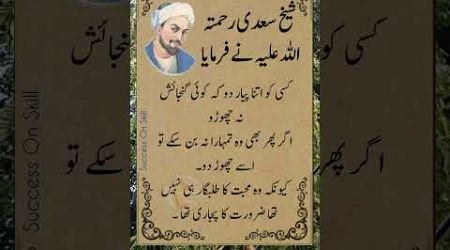 شیخ سعدی رحمتہ
اللہ علیہ نے فرمایا
کسی کو اتنا پیار دو کہ کوئی گنجائش
نہ چھوڑو
اگر پھر بھی وہ تمہارا نہ بن سکے تو
اسے چھوڑ دو۔
کیونکہ وہ محبت کا طلبگار ہی نہیں
تھا ضرورت کا پجاری تھا۔
Success On Skill
اگر پھر
سکے تو
Success On Skill